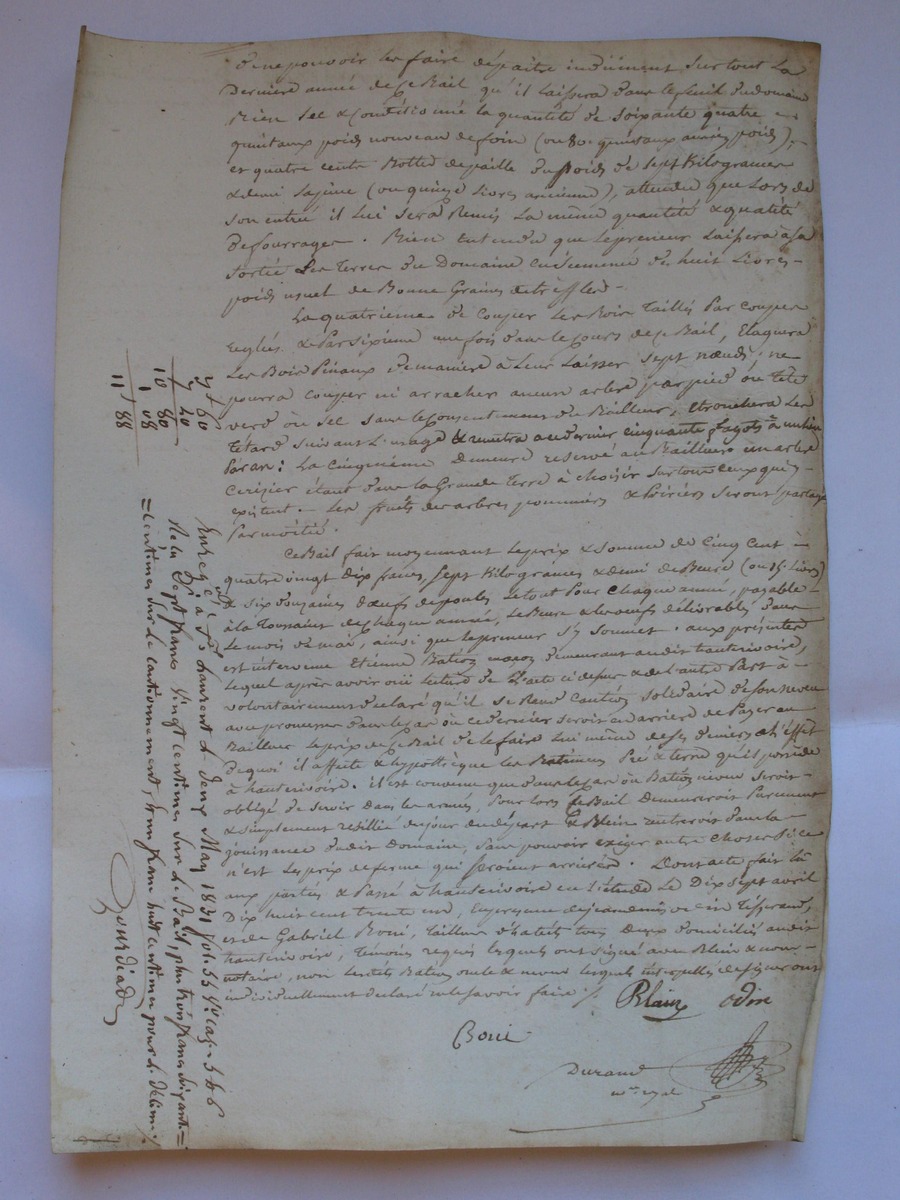 de ne pouvoir les faire dépaitre indûment surtout la
Derniere année de ce Bail qu'il laissera dans le fenil du domaine
Bien sec & Conditionné la quantité de soixante quatre
quintaux poids nouveau de foin (ou 80 quintaux ancien poids),
et quatre cents Bottes de paille du poids de sept Kilogrames
& demi la pièce (ou quinze Livres anciennes), attendu que Lors de
son entrée il lui sera Remis La même quantité & qualité
de fourrages. Bien entendu que le preneur laissera à sa
sortie les Terres du Domaine ensemencé de huit Livres
poids usuel de Bonne Graine de treffle.
La quatrieme de Couper les Bois Taillis Par coupes
reglées & Par sixième une fois dans le cours de ce Bail, Elaguera
Les Bois Pinaux de manière à Leur Laisser sept nœuds; ne
pourra couper ni arracher aucun arbre par pied ou tête
verd ou sec sans le consentement du Bailleur, etronchera Les
Tétards suivant L'usage & remettra au dernier cinquante fagots à
Par an: La cinquième Demeure reservé au Bailleur un arbre
Cerizier étant dans la Grande Terre à choisir sur tous ceux qui
existent. Les fruits des arbres pommiers & Poiriers seront partagé
Par moitié.
Ce Bail fait moyennant le prix & somme de Cinq Cent
quatre vingt dix francs, sept Kilogrames & demi de Beure (ou 15 Livres)
& six douzaines d'œufs de poules le tout Pour chaque année, payable
à la Toussaint de chaque année, le Beure & les œufs délivrables dans
Le mois de mai, ainsi que le preneur s'y soumet. aux présentes
est intervenu Etienne Batiou maçon demeurant audit hauterivoire,
lequel après avoir oui lecture de l'acte ci dessus & de l'autre Part à
volontairement déclaré qu'il se Rend Caution solidaire de son neveu
avec promesse dans le cas où ce dernier seroit en arriere de Payer au
Bailleur le prix de ce Bail de le faire lui même de ses deniers à l'effet
de quoi il affecte & hypothèque les Batimens Pré & terre qu'il possède
à hauterivoire. il est convenu que dans le cas ou Batiou neveu seroit
obligé de servir dans les armées, Pour lors ce Bail demeureroit Purement
& simplement resillié du jour du départ & Blein rentreroit dans la
jouissance dudit Domaine, sans pouvoir exiger autre chose si ce
n'est les prix de ferme qui seroient arrierés. Dont acte fait lu
aux parties & Passé à hauterivoire en l'étude Le Dix sept avril
Dix huit cent trente un, En présence de jean denis odin Tisserand,
et de Gabriel Boni, Tailleur d'habits tous deux domiciliés audit
hauterivoire, Témoins requis lesquels ont signé avec Blein & nous
notaire, non lesdits Batiou oncle & neveu lesquels interpellés de signer ont
individuellement déclaré ne le savoir faire ./.
Blein odin
Boni
Durand
nre royal
9 + 60
7 20
10 80
1 08
11 88
Enregté à St Laurent le deux May 1831 fol. 55 Vo cas. 5 & 6
Reçu sept francs vingt centimes sur le Bail, plus trois francs soixante
centimes sur le cautionnement, & un franc huit centimes pour le décime.
Gourdiad